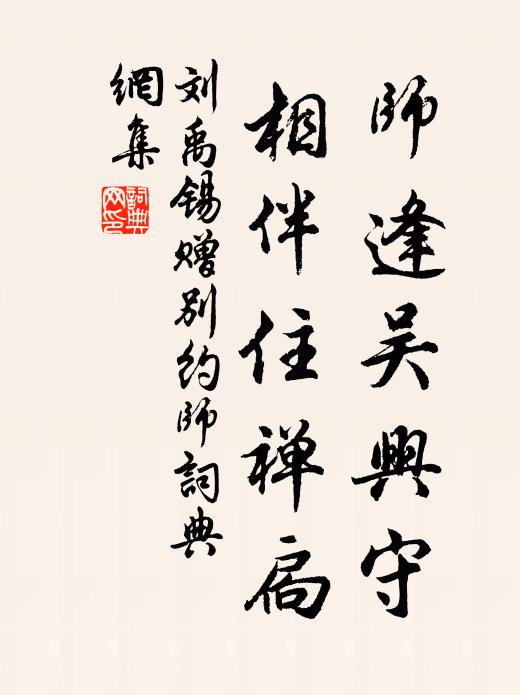 師逢吴興守
相伴住禅扃
刘禹锡赠别约师詞典
網集
詞典
网印